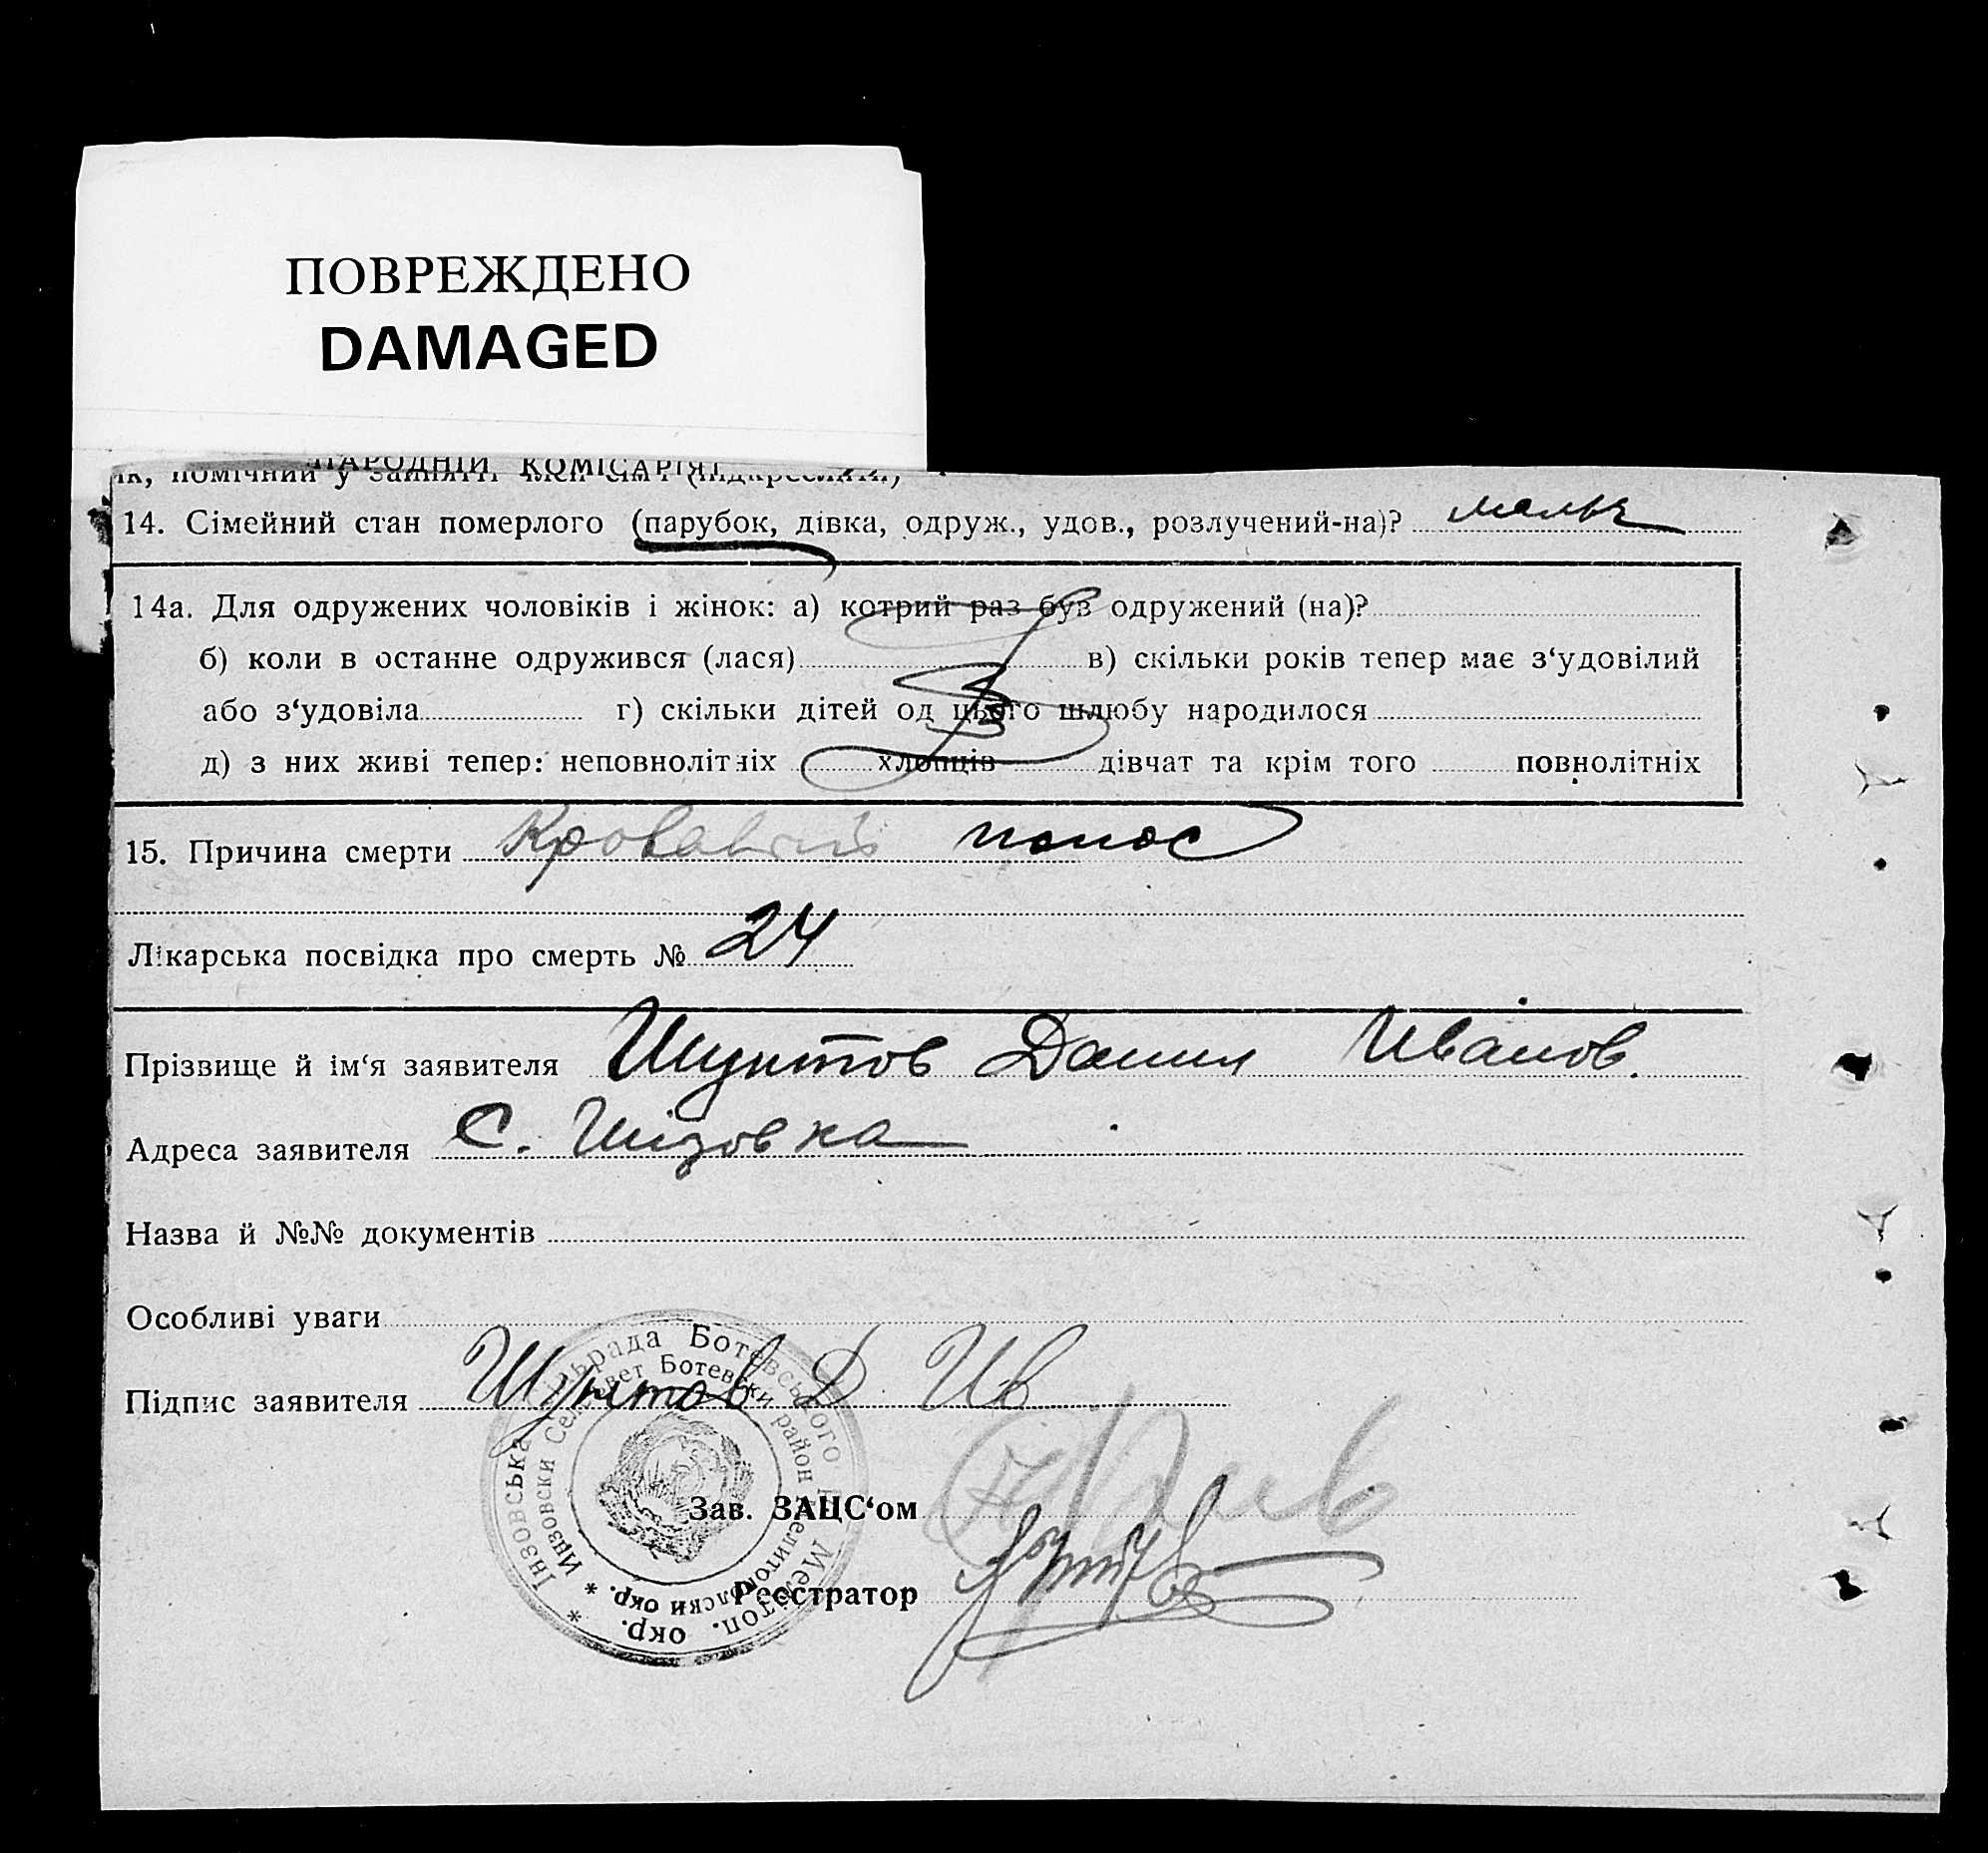 ПОВРЕЖДЕНО
DAMAGED
НАРОДНІЙ КОМІСАРІЯТ
ік, помічний у занятті член сім'ї (підкреслити)
14. Сімейний стан померлого (парубок, дівка, одруж., удов., розлучений-на)? мальч
14а. Для одружених чоловіків і жінок: а) котрий раз був одружений (на)?
б) коли в останне одружився (лася) в) скільки років тепер має з‘удовілий
або з‘удовіла г) скільки дітей од цього шлюбу народилося
д) з них живі тепер: неповнолітніх хлопців дівчат та крім того повнолітніх
15. Причина смерти Кровавый понос
Лікарська посвідка про смерть № 24
Прізвище й ім‘я заявителя Шунтов Данил Иванов.
Адреса заявителя С. Инзовка
Назва й №№ документів
Особливі уваги
Підпис заявителя Шунтов Д Ив
Зав. ЗАЦС‘ом
Реєстратор
* Інзовська сільрада Ботевського р. Мелітоп. окр.
* Инзовски Селсовет Ботевски район Мелитополски окр.